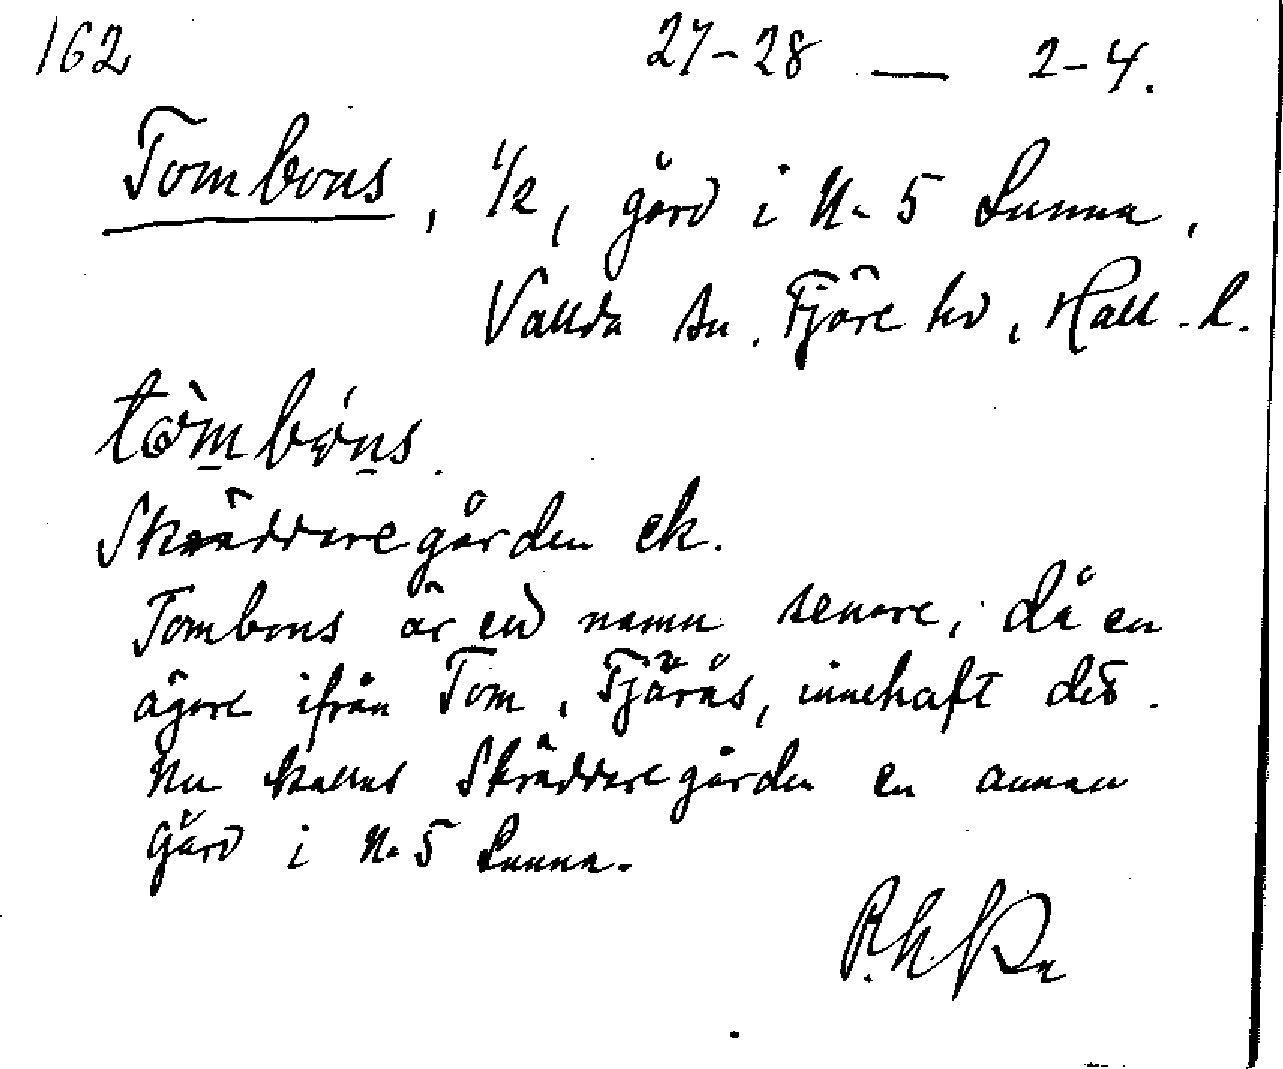 162 27-28 — 2-4.
Tombons, 1/2, gård i N. 5 Lunna,
Vallda sn. Fjäre hd, Hall. l.
tòmbóns.
Skräddaregården ek.
Tombons är ett namn senare, då en
ägare ifrån Tom, Fjärås, innehaft det.
Nu kallas Skräddaregården en annan
gård i N. 5 Lunna.